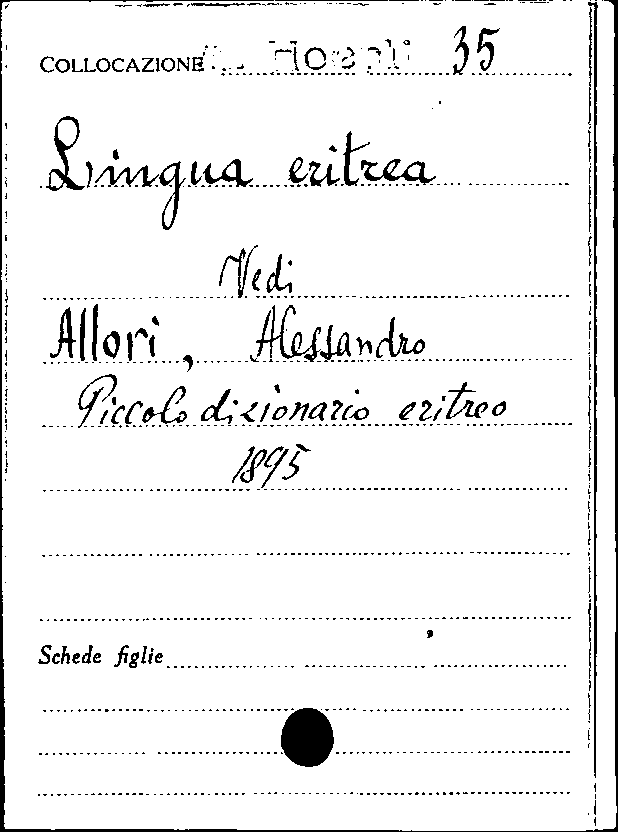 COLLOCAZIONE Hoepli 35
Lingua eritrea
Vedi
Allori, Alessandro
Piccolo dizionario eritreo
1895
Schede figlie